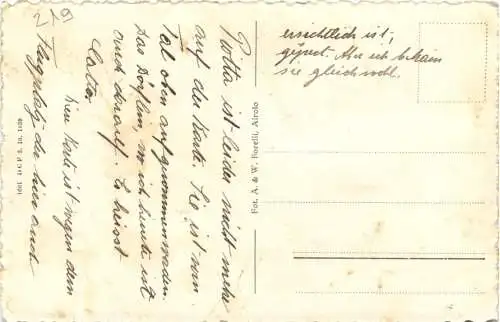 219
Piotta ist leider nicht mehr
auf der Karte. Sie ist vom
Tal oben aufgenommen worden.
Das Dörflein, wo ich heute bin ist
auch darauf. Es heisst
Catto.
Die Karte ist wegen dem
Flugplatz der hier auch
ersichtlich ist,
gesperrt. Aber ich bekam
sie gleichwohl.
Fot. A. & W. Borelli, Airolo
1661 D C F 2. 10. 1039